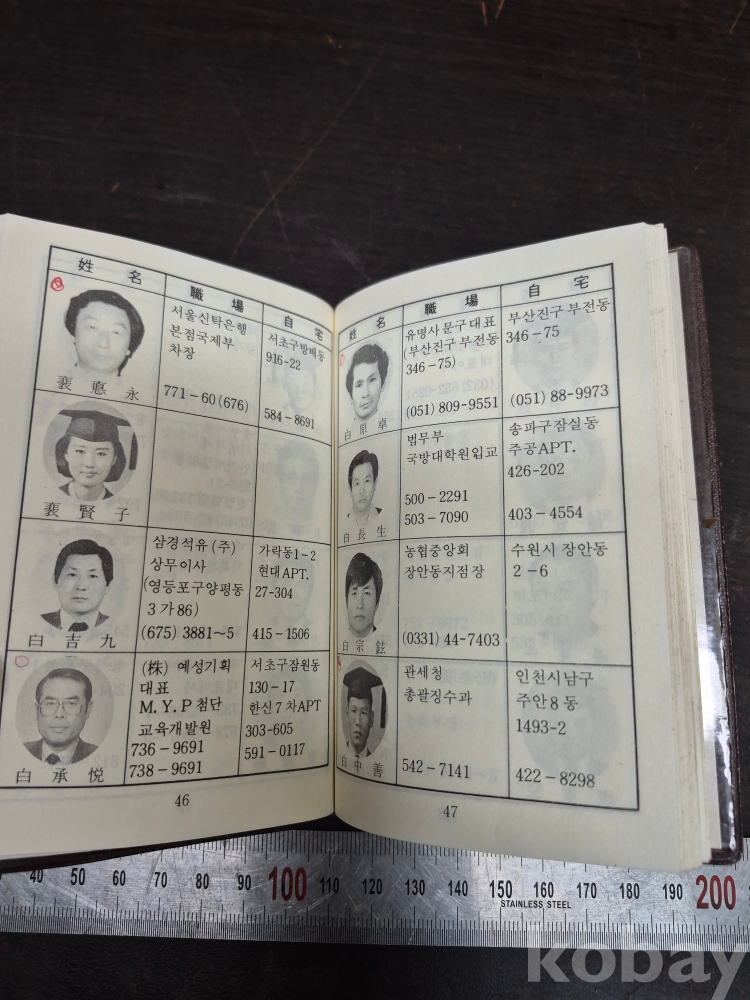 姓 名
職 場
自 宅
裵 悳 永
서울신탁은행
본점국제부
차장
771-60(676)
서초구방배동
916-22
584-8691
裵 賢 子
白 吉 九
삼경석유(주)
상무이사
(영등포구양평동
3가86)
(675) 3881~5
가락동1-2
현대APT.
27-304
415-1506
白 承 悦
(株) 예성기획
대표
M. Y. P 첨단
교육개발원
736-9691
738-9691
서초구잠원동
130-17
한신7차APT
303-605
591-0117
46
姓 名
職 場
自 宅
白 原 卓
유명사 문구 대표
(부산진구 부전동
346-75)
(051) 809-9551
부산진구 부전동
346-75
(051) 88-9973
白 長 生
법무부
국방대학원입교
500-2291
503-7090
송파구잠실동
주공APT.
426-202
403-4554
白 宗 鉉
농협중앙회
장안동지점장
(0331) 44-7403
수원시 장안동
2-6
白 中 善
관세청
총괄징수과
542-7141
인천시남구
주안8동
1493-2
422-8298
47
40 50 60 70 80 90 100 110 120 130 140 150 160 170 180 190 200
STAINLESS STEEL
kobay